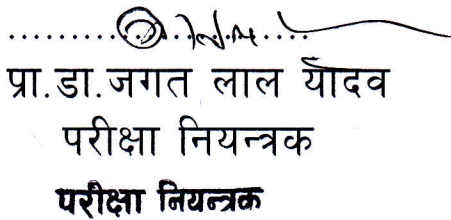 प्रा.डा.जगत लाल यादव
परीक्षा नियन्त्रक
परीक्षा नियन्त्रक